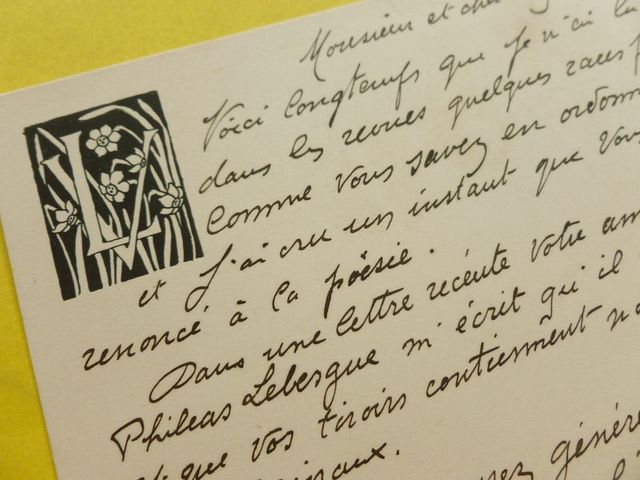 LV
Monsieur et cher
Voici longtemps que je n'ai lu
dans les revues quelques vers
Comme vous savez en ordonn
et j'ai cru un instant que vous
renoncé à la poësie.
Dans une lettre récente votre am
Phileas Lebesgue m'écrit qu'il
que vos tiroirs contiennent
génére